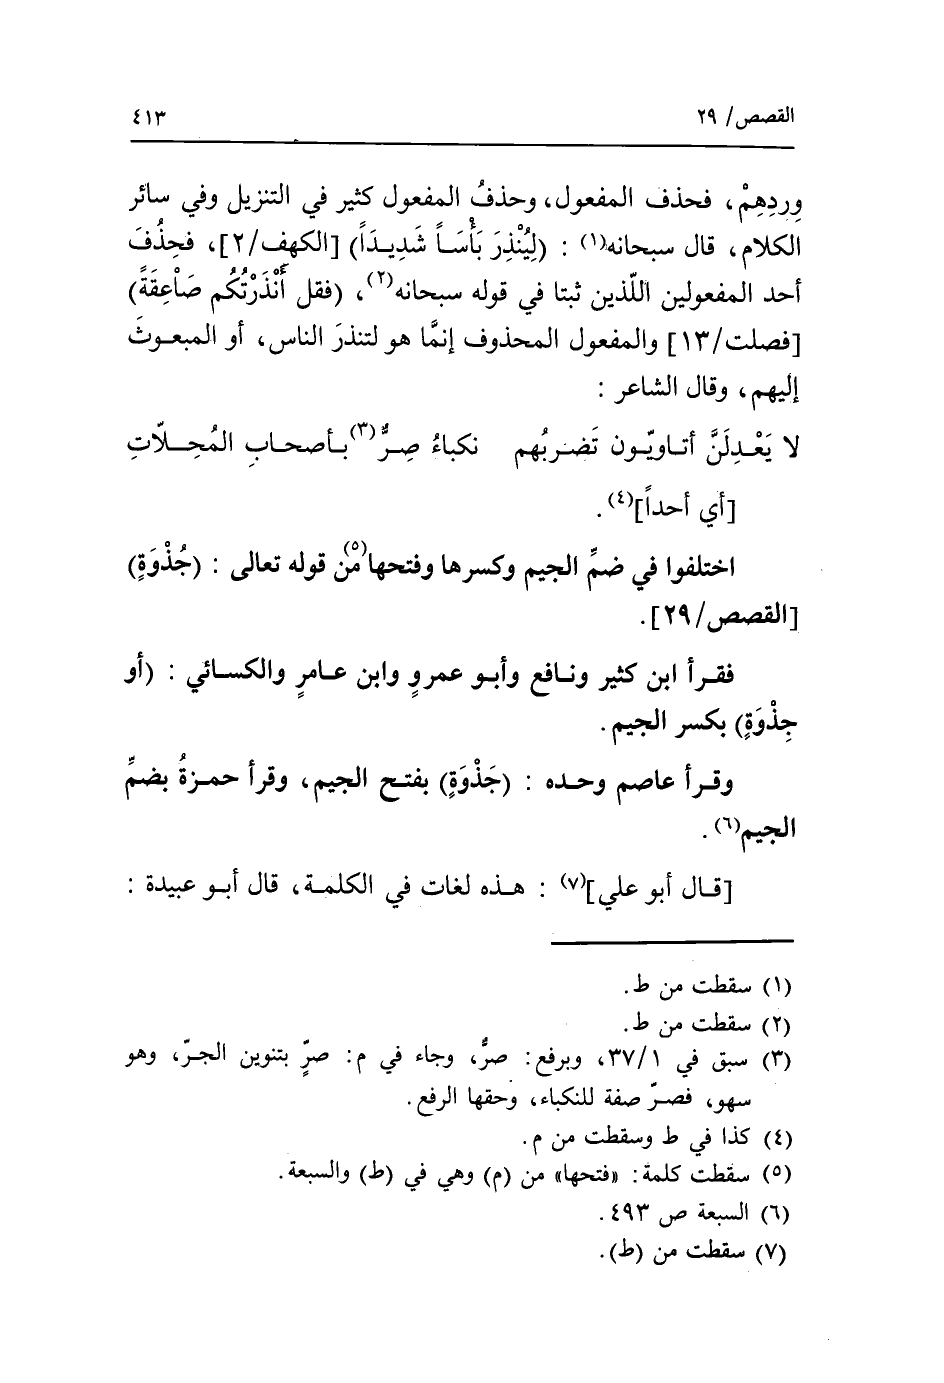 القصص/ ٢٩
٤١٣
وِردِهِمْ، فحذف المفعول، وحذفُ المفعول كثير في التنزيل وفي سائر
الكلام، قال سبحانه(١) : (لِيُنْذِرَ بَأْسَاً شَدِيدَاً) [الكهف/٢]، فحِذُفَ
أحد المفعولين اللّذين ثبتا في قوله سبحانه(٢)، (فقل أَنْذَرْتُكُم صَاْعِقَةً)
[فصلت/١٣] والمفعول المحذوف إنمَّا هو لتنذرَ الناس، أو المبعوثَ
إليهم، وقال الشاعر :
لا يَعْدِلَنَّ أتاويّون تَضربُهم نكباءُ صِرٌّ(٣) بأصحابِ المُحِلّاتِ
[أي أحداً](٤).
اختلفوا في ضمِّ الجيم وكسرها وفتحها(٥) من قوله تعالى : (جُذْوَةٍ)
[القصص/٢٩].
فقرأ ابن كثير ونافع وأبو عمروٍ وابن عامرٍ والكسائي : (أو
جِذْوَةٍ) بكسر الجيم.
وقرأ عاصم وحده : (جَذْوَةٍ) بفتح الجيم، وقرأ حمزةُ بضمِّ
الجيم(٦).
[قال أبو علي](٧) : هذه لغات في الكلمة، قال أبو عبيدة :
(١) سقطت من ط.
(٢) سقطت من ط.
(٣) سبق في ٣٧/١، وبرفع: صرٌّ، وجاء في م: صرٍّ بتنوين الجرّ، وهو
سهو، فصرّ صفة للنكباء، وحقها الرفع.
(٤) كذا في ط وسقطت من م.
(٥) سقطت كلمة: «فتحها» من (م) وهي في (ط) والسبعة.
(٦) السبعة ص ٤٩٣.
(٧) سقطت من (ط).